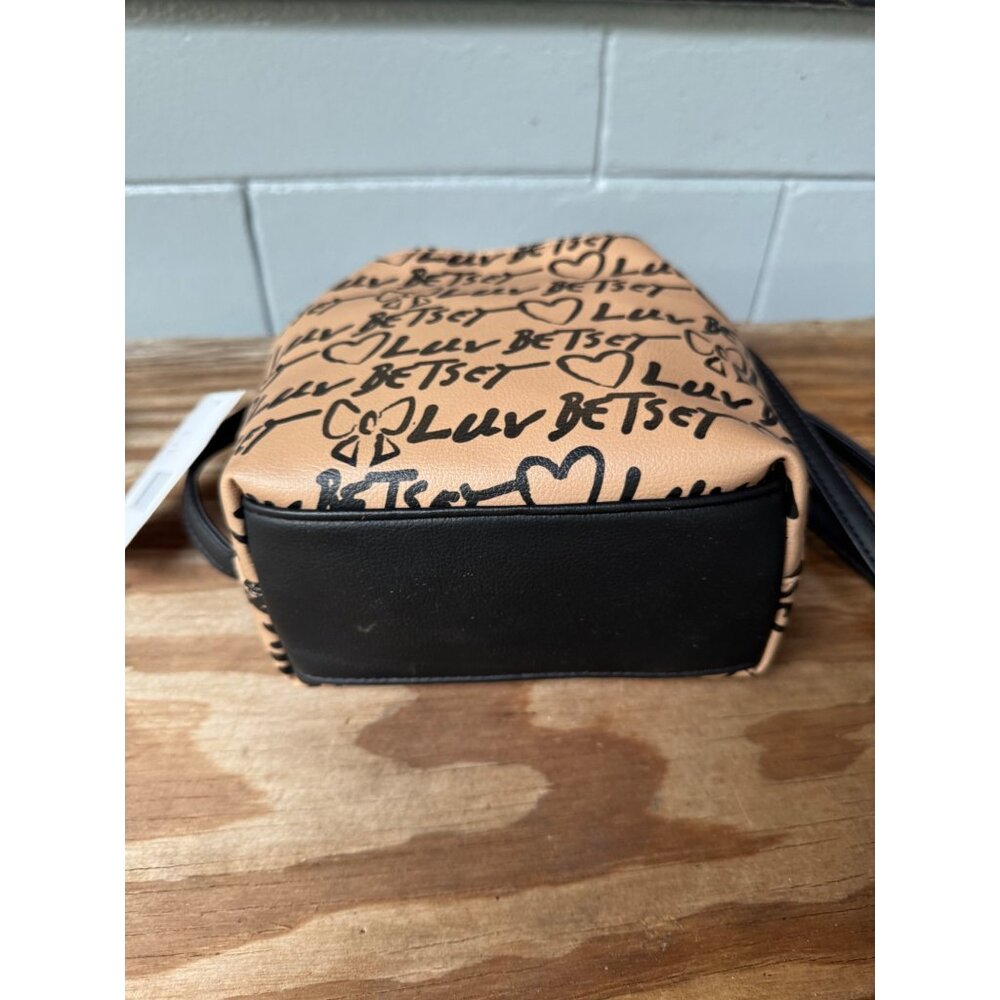 BETSEY
Luv BETSEY ♡ Luv
Luv BETSEY
BETSEY ♡ Luv
♡ Luv BETSEY
Luv BETSEY ♡ Luv
Luv BETSEY
BETSEY ♡ Luv